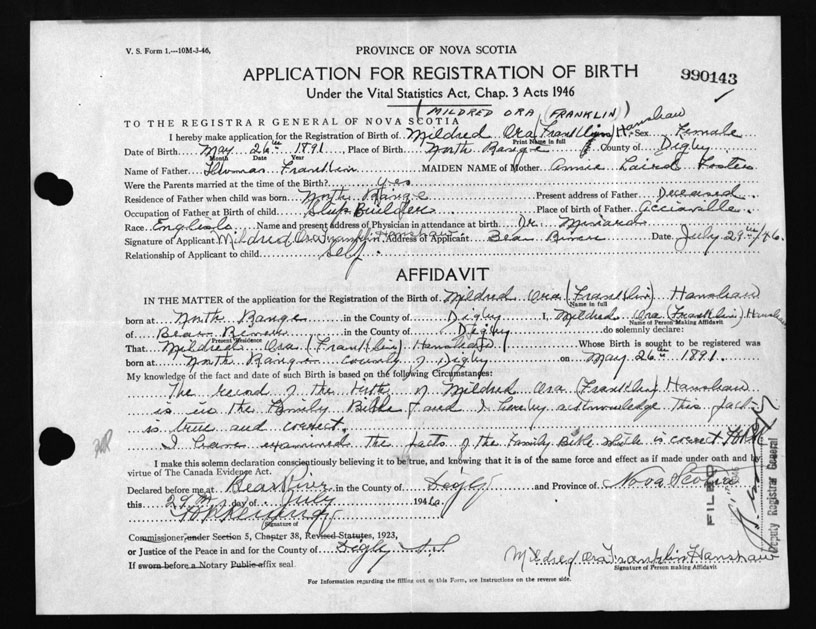 V. S. Form 1.—10M-3-46.
PROVINCE OF NOVA SCOTIA
APPLICATION FOR REGISTRATION OF BIRTH
990143
Under the Vital Statistics Act, Chap. 3 Acts 1946
MILDRED ORA (FRANKLIN)
TO THE REGISTRAR GENERAL OF NOVA SCOTIA
I hereby make application for the Registration of Birth of Mildred Ora (Franklin) Hanshaw Sex Female
Print Name in full
Date of Birth May 26th 1891 Place of Birth North Range County of Digby
Month Date Year
Name of Father Franklin MAIDEN NAME of Mother Annie Laird Foster
Were the Parents married at the time of the Birth? yes
Residence of Father when child was born North Range Present address of Father Deceased
Occupation of Father at Birth of child Ship Builder Place of birth of Father Acciaville
Race English Name and present address of Physician in attendance at birth Dr.
Signature of Applicant Mildred Ora Franklin Hanshaw Address of Applicant Bear River Date July 29th/46.
Relationship of Applicant to child Self
AFFIDAVIT
IN THE MATTER of the application for the Registration of the Birth of Mildred Ora (Franklin) Hanshaw
Name in full
born at North Range in the County of Digby I, Mildred Ora (Franklin) Hanshaw
Name of Person Making Affidavit
of Bear River in the County of Digby do solemnly declare:
Present Residence
That Mildred Ora (Franklin) Hanshaw Whose Birth is sought to be registered was
born at North Range County of Digby on May 26th 1891.
My knowledge of the fact and date of such Birth is based on the following Circumstances:
The record of the birth of Mildred Ora (Franklin) Hanshaw
is in the Family Bible and I hereby acknowledge this fact
is true and correct.
I have examined the facts of the Family Bible which is correct
I make this solemn declaration conscientiously believing it to be true, and knowing that it is of the same force and effect as if made under oath and by
virtue of The Canada Evidence Act.
Declared before me at Bear River in the County of Digby and Province of Nova Scotia
this 29th day of July 1946.
Signature of
Commissioner under Section 5, Chapter 38, Revised Statutes, 1923,
or Justice of the Peace in and for the County of Digby N.S.
If sworn before a Notary Public affix seal
Mildred Ora Franklin Hanshaw
Signature of Person making Affidavit
For Information regarding the filling out of this Form, see Instructions on the reverse side.
FILED
Deputy Registrar General